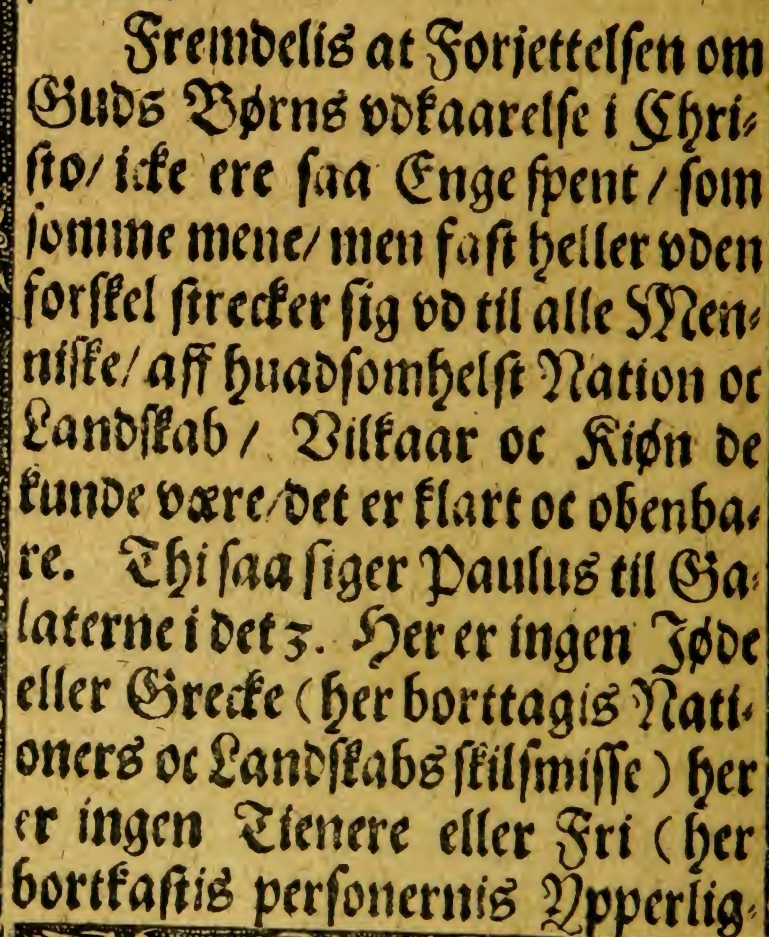 Fremdelis at Forjettelsen om
Guds Børns vdkaarelse i Chri⸗
sto/ icke ere saa Enge spent / som
somme mene/ men fast heller vden
forskel strecker sig vd til alle Men⸗
niske/ aff huadsomhelst Nation oc
Landskab / Vilkaar oc Kiøn de
kunde være/ det er klart oc obenba⸗
re. Thi saa siger Paulus til Ga⸗
laterne i det 3. Her er ingen Jøde
eller Grecke (her borttagis Nati⸗
oners oc Landskabs skilsmisse) her
er ingen Tienere eller Fri (her
bortkastis personernis Ypperlig⸗